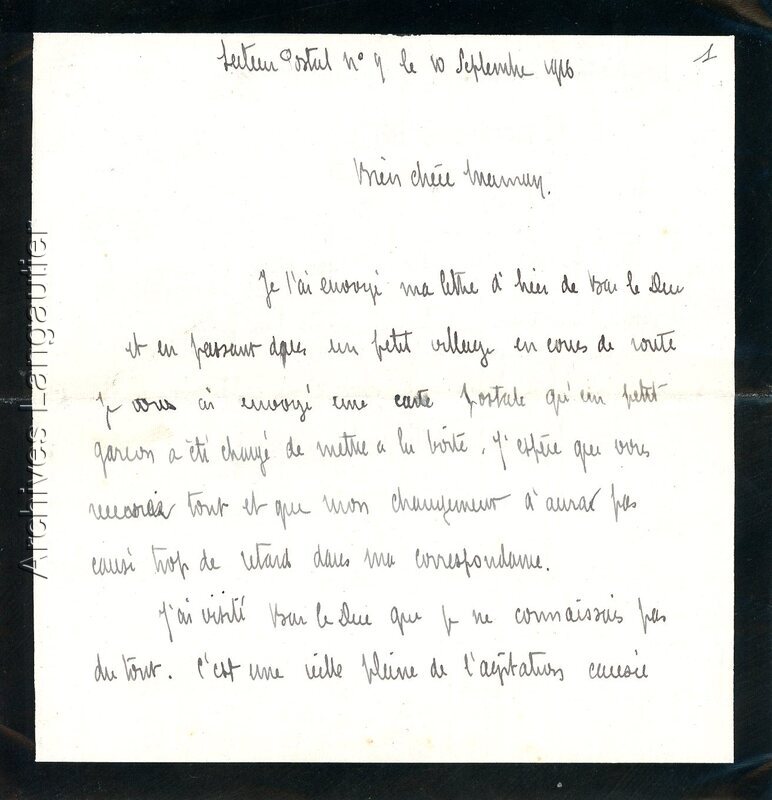 Secteur Postal N° 9 le 10 Septembre 1916
1
Bien chère Maman.
Je t'ai envoyé ma lettre d'hier de Bar le Duc
et en passant dans un petit village en cours de route
je vous ai envoyé une carte postale qu'un petit
garçon a été chargé de mettre a la boîte. J'espère que vous
recevrez tout et que mon changement n'aura pas
causé trop de retard dans ma correspondance.
J'ai visité Bar le Duc que je ne connaissais pas
du tout. C'est une ville pleine de l'agitation causée
Archives Langautier